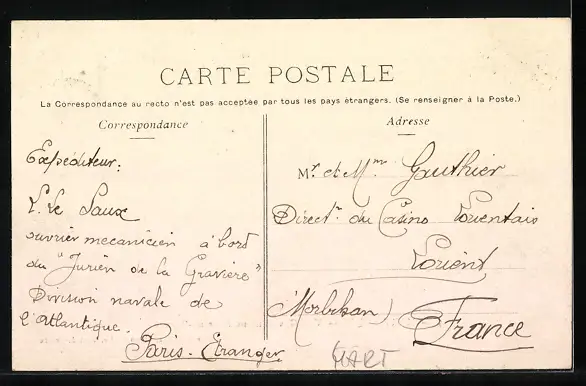 CARTE POSTALE
La Correspondance au recto n'est pas acceptée par tous les pays étrangers. (Se renseigner à la Poste.)
Correspondance
Expéditeur:
L. Le Saux
ouvrier mecanicien à bord
du "Jurien de la Gravière"
Division navale de
l'Atlantique.
Paris-Etranger
Adresse
Mr. et Mme Gauthier
Direct.r du Casino Lorientais
Lorient
Morbihan)
France
MART